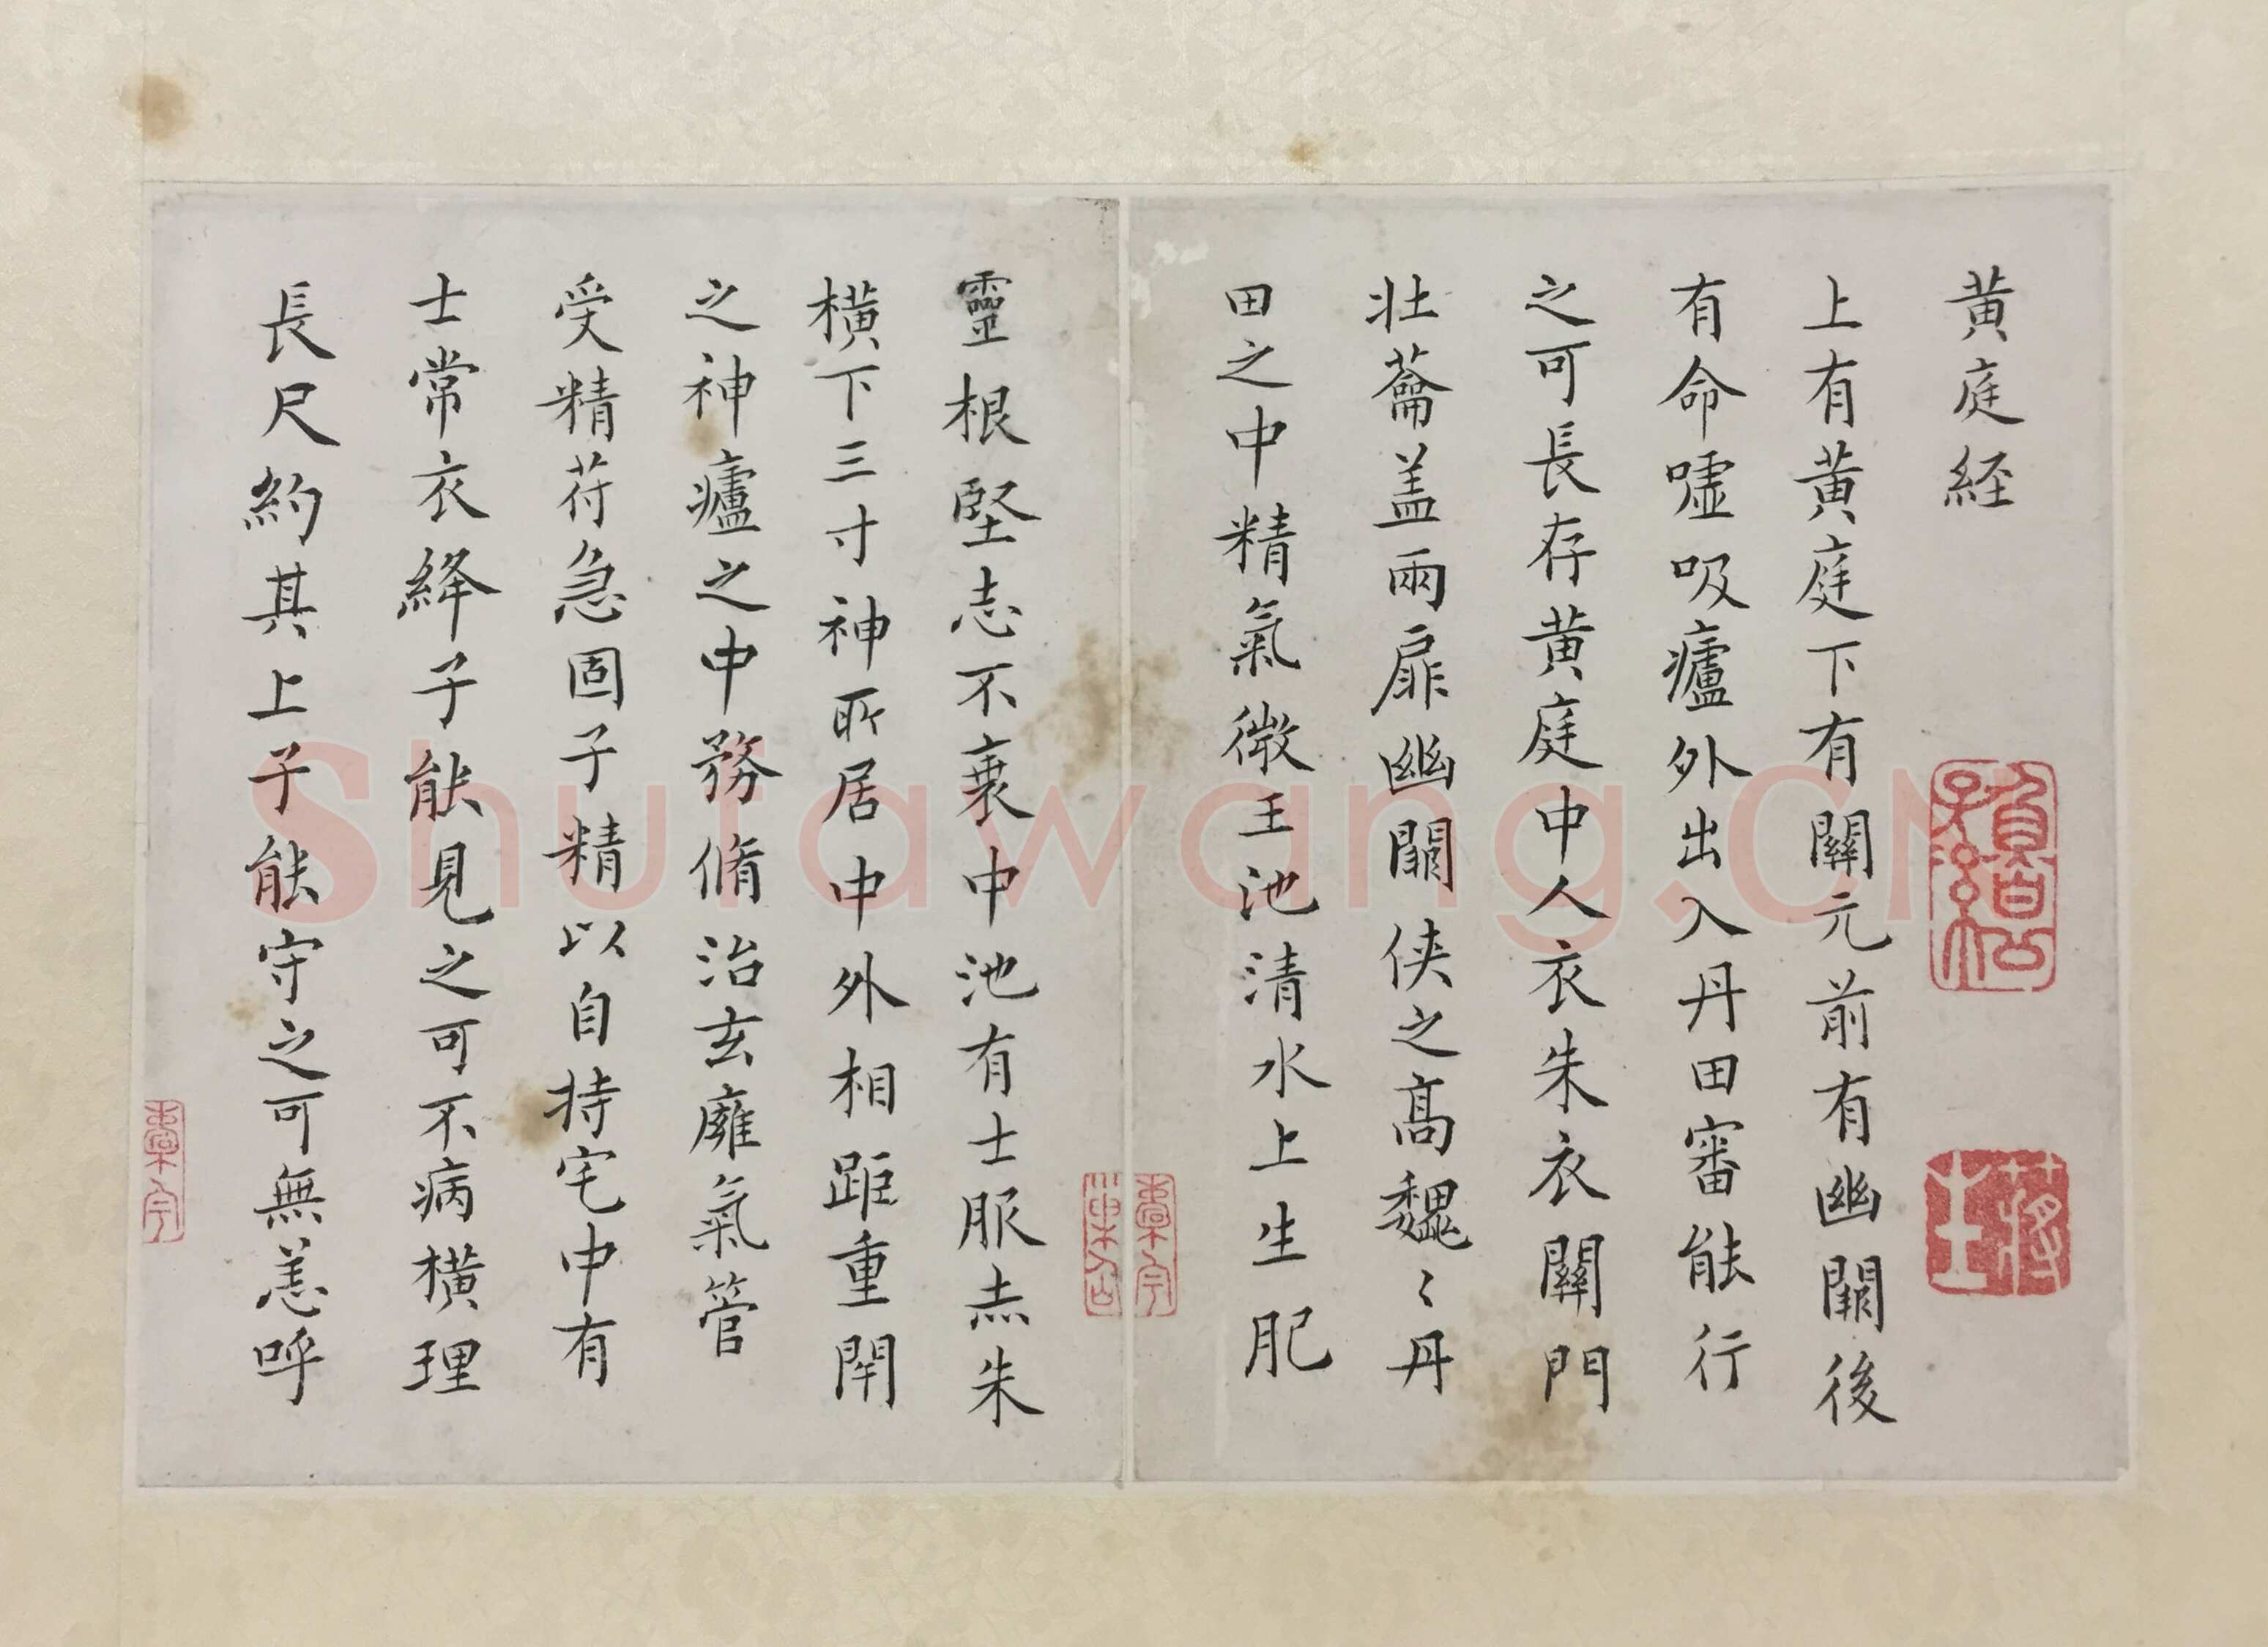 黄庭経
上有黄庭下有關元前有幽闕後
有命嘘吸廬外出入丹田審能行
之可長存黄庭中人衣朱衣關門
壯蘥盖兩扉幽闕俠之髙魏〻丹
田之中精氣微王池清水上生肥
靈根堅志不衰中池有士服赤朱
横下三寸神所居中外相距重閇
之神廬之中務脩治玄廱氣管
受精苻急固子精以自持宅中有
士常衣絳子能見之可不病横理
長尺約其上子能守之可無恙呼
Shufawang.CN